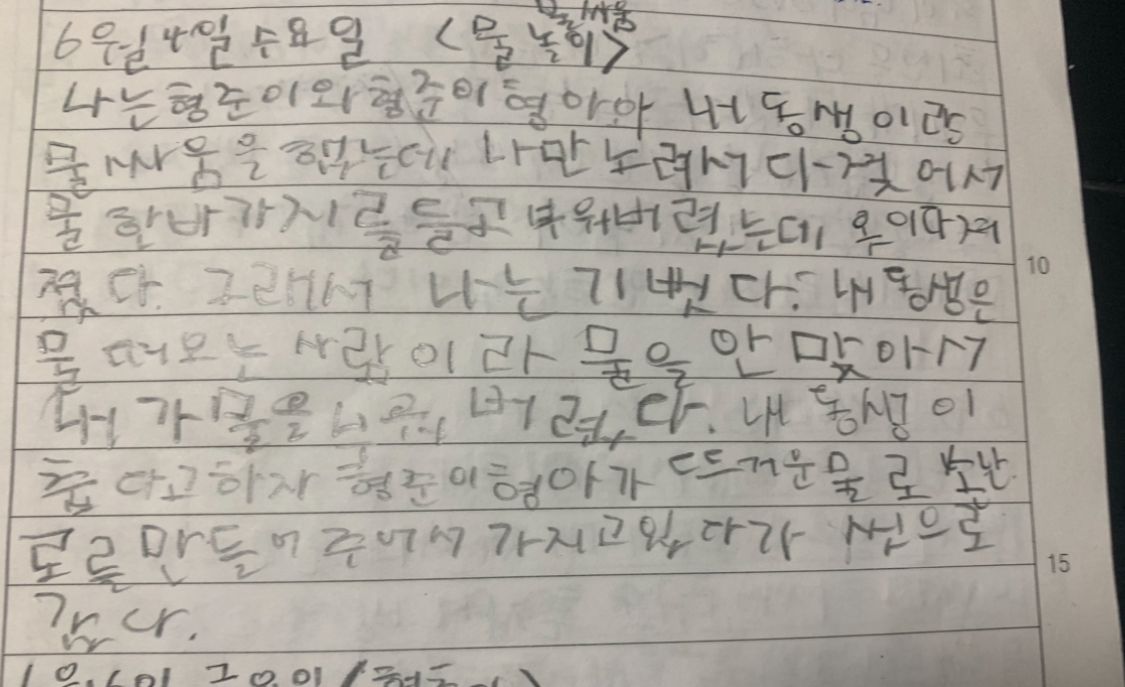 6월 4일 수요일 <물놀이>
물싸움
나는형준이와형준이형아아 내동생이랑
물싸움을 했는데 나만노려서 다젖어서
물한바가지를들고부워버렸는데 옷이다저
졌다. 그래서 나는 기뻤다. 내동생은
물떠오는 사람이라 물을 안맞아서
내가물을부워버렸다. 내동생이
춥다고하자 형준이형아가 뜨거운물로
로를만들어주어서가지고있다가 씬으로
갔다.
10
15